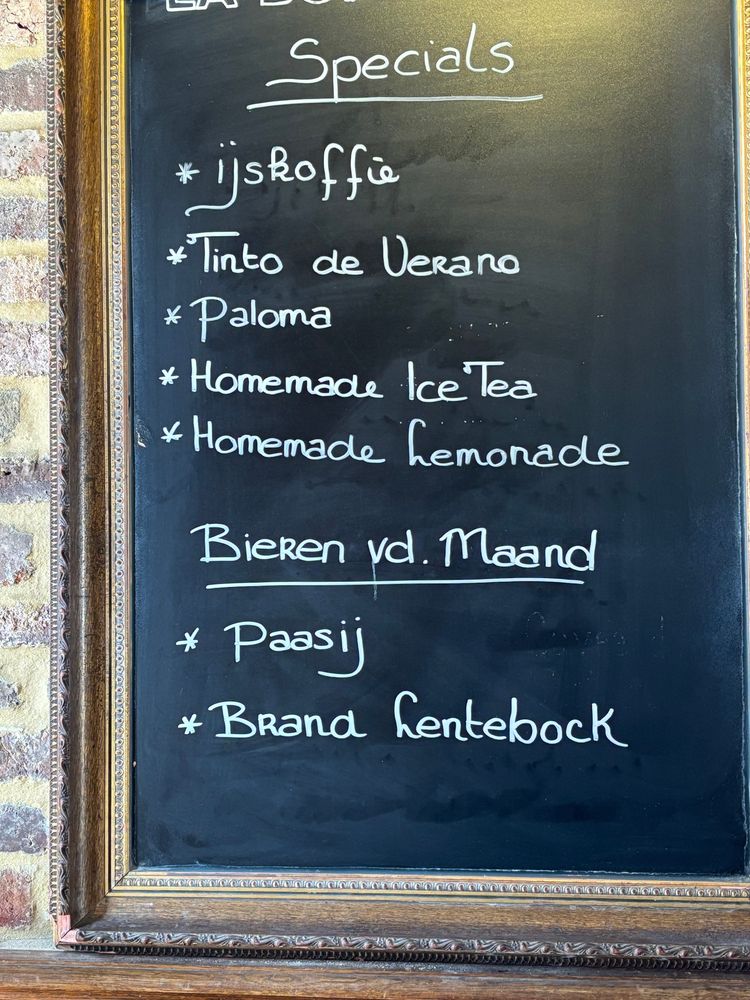 Specials
* ijskoffie
* Tinto de Verano
* Paloma
* Homemade Ice Tea
* Homemade Lemonade
Bieren vd. Maand
* Paasij
* Brand Lentebock